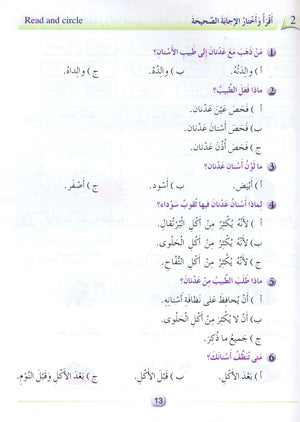 Read and circle
2 أَقْرَأُ وَأَخْتارُ الإِجابَةَ الصَّحيحَةَ
1 مَنْ ذَهَبَ مَعَ عَدْنانَ إِلى طَبيبِ الأَسْنانِ؟
أ ) والِدَتُهُ. ب ) والِدُهُ. ج ) والِداهُ.
2 ماذا فَعَلَ الطَّبيبُ؟
أ ) فَحَصَ عَيْنَ عَدْنان.
ب ) فَحَصَ أَسْنانَ عَدْنان.
ج ) فَحَصَ أُذُنَ عَدْنان.
3 ما لَوْنُ أَسْنانِ عَدْنان؟
أ ) أَبْيَض. ب ) أَسْود. ج ) أَصْفَر.
4 لِماذا أَسْنانُ عَدْنانَ فيها ثُقوبٌ سَوْداء؟
أ ) لأَنَّهُ يُكْثِرُ مِنْ أَكْلِ الْبُرْتُقالِ.
ب ) لأَنَّهُ يُكْثِرُ مِنْ أَكْلِ الْحَلْوى.
ج ) لأَنَّهُ يُكْثِرُ مِنْ أَكْلِ التُّفَّاحِ.
5 ماذا طَلَبَ الطَّبيبُ مِنْ عَدْنانَ؟
أ ) أَنْ يُحافِظَ عَلى نَظافَةِ أَسْنانِهِ.
ب ) أَنْ لا يُكْثِرَ مِنْ أَكْلِ الْحَلْوى.
ج ) جَميعُ ما ذُكِرَ.
6 مَتى تُنَظِّفُ أَسْنانَكَ؟
أ ) بَعْدَ الأَكْلِ. ب ) قَبْلَ الأَكْلِ. ج ) بَعْدَ الأَكْلِ وَقَبْلَ النَّوْمِ.
13